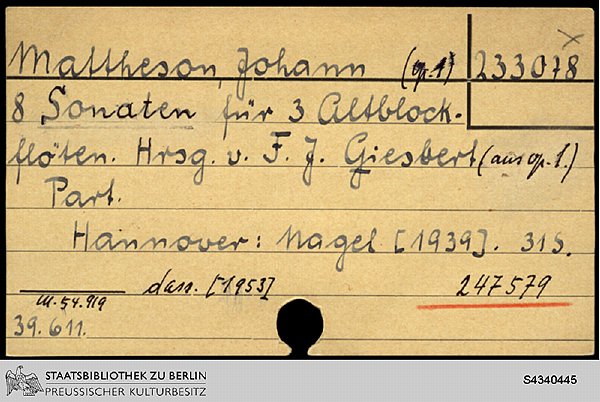 Mattheson, Johann (op. 1) 233078
8 Sonaten für 3 Altblock-
flöten. Hrsg. v. F. J. Giesbert (aus op. 1.)
Part.
Hannover: Nagel [1939]. 31 S.
dass. [1953] 247579
M. 54. 919
39. 611.
STAATSBIBLIOTHEK ZU BERLIN
PREUSSISCHER KULTURBESITZ
S4340445